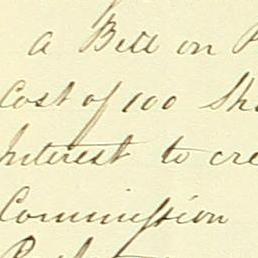 a Bill on
Cost of 100 Sh
Interest to cre
Commission